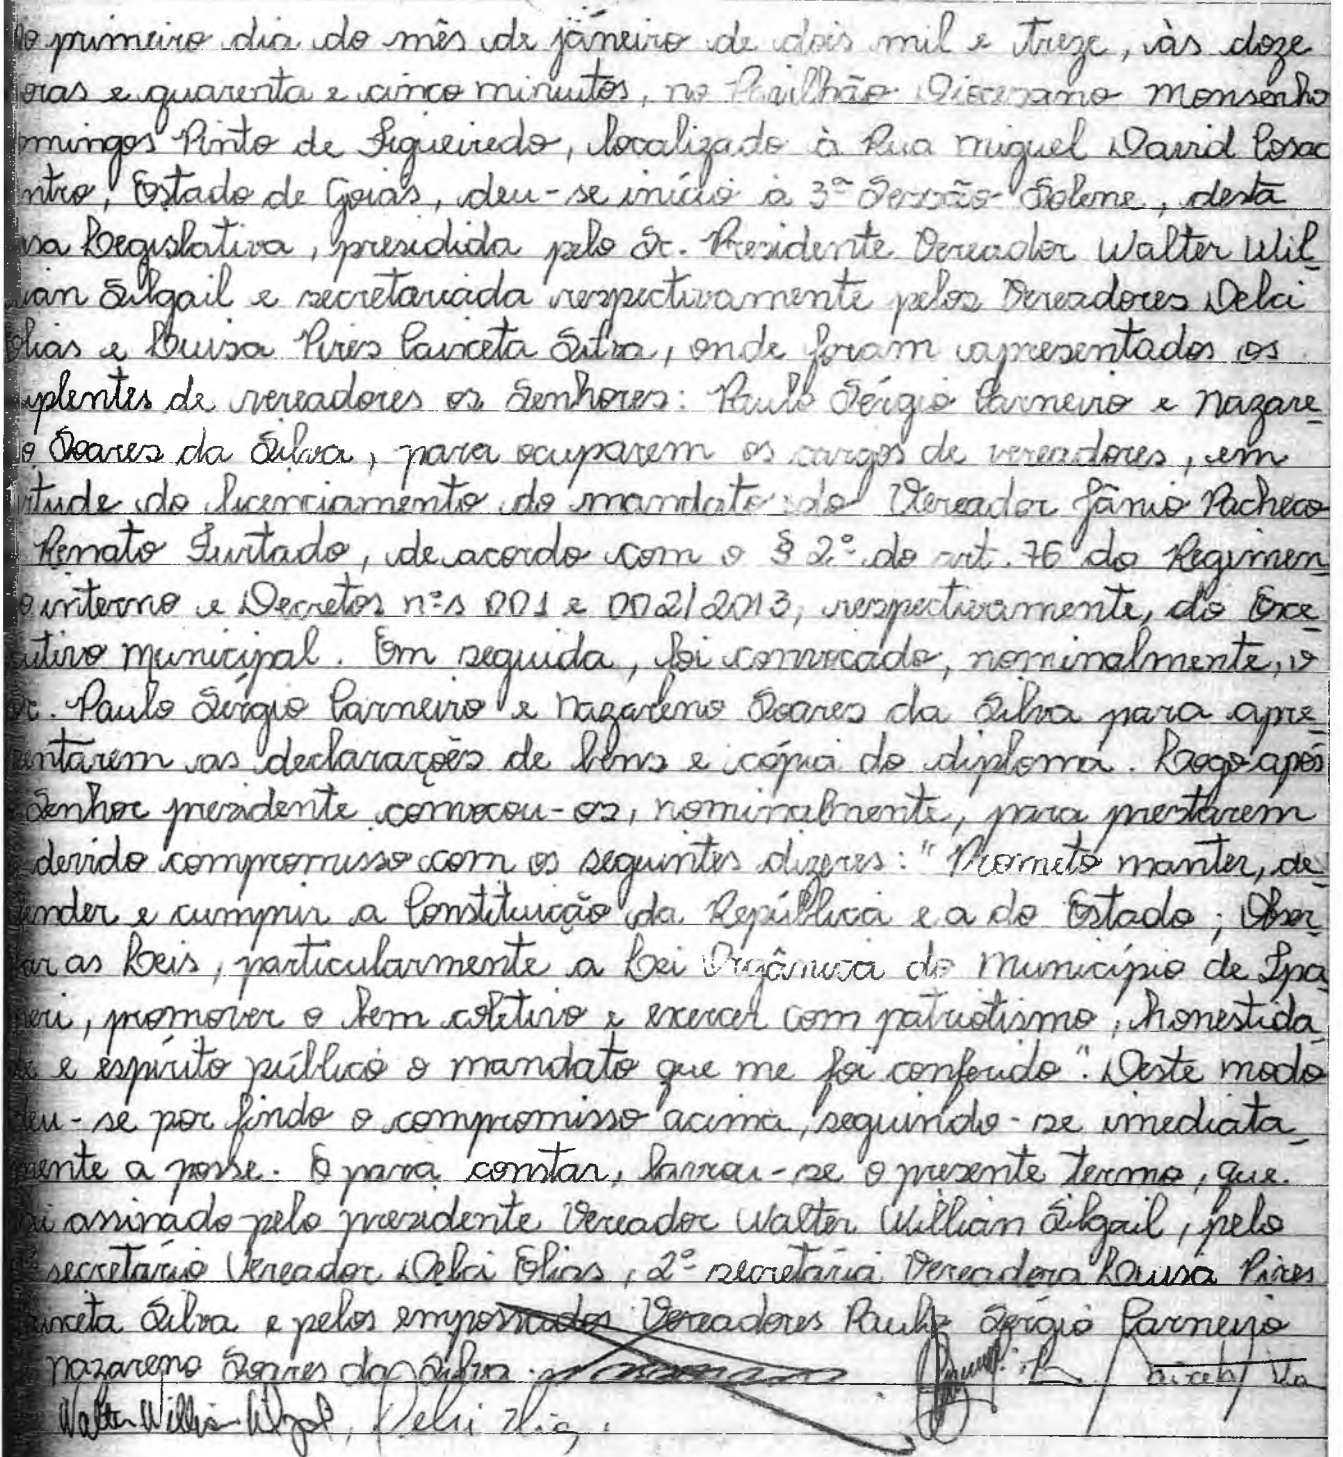 o primeiro dia do mês de janeiro de dois mil e treze, às doze
oras e quarenta e cinco minutos, no Pavilhão Diocesano Monsenho
mingos Pinto de Figueiredo, localizado à Rua Miguel David Cosac
ntro, Estado de Goiás, deu-se início a 3ª Sessão Solene, desta
sa Legislativa, presidida pelo Sr. Presidente Vereador Walter Wil-
lian Silgail e secretariada respectivamente pelos Vereadores Delci
Elias e Luisa Pires Caixeta Silva, onde foram apresentados os
uplentes de vereadores os Senhores: Paulo Sérgio Carneiro e Nazare-
o Soares da Silva, para ocuparem os cargos de vereadores, em
irtude do licenciamento do mandato do Vereador Jânio Pacheco
Renato Furtado, de acordo com o § 2º do art. 76 do Regimen
o interno e Decretos nºs 001 e 002/2013, respectivamente, do Exe-
cutivo Municipal. Em seguida, foi convocado, nominalmente, o
Sr. Paulo Sérgio Carneiro e Nazareno Soares da Silva para apre-
entarem as declarações de bens e cópia do diploma. Logo após
Senhor presidente convocou-os, nominalmente, para prestarem
devido compromisso com os seguintes dizeres: "Prometo manter, de-
fender e cumprir a Constituição da República e a do Estado; Obser-
var as Leis, particularmente a Lei Orgânica do Município de Ipa-
meri, promover o bem coletivo e exercer com patriotismo, honestida-
de e espírito público o mandato que me foi conferido". Deste modo
deu-se por findo o compromisso acima, seguindo-se imediata-
mente a posse. E para constar, lavrou-se o presente termo, que
ai assinado pelo presidente Vereador Walter Willian Silgail, pelo
secretário Vereador Delci Elias, 2ª secretária Vereadora Luisa Pires
aixeta Silva e pelos empossados Vereadores Paulo Sérgio Carneiro
Nazareno Soares da Silva.
Walter Willian, Delci Elias